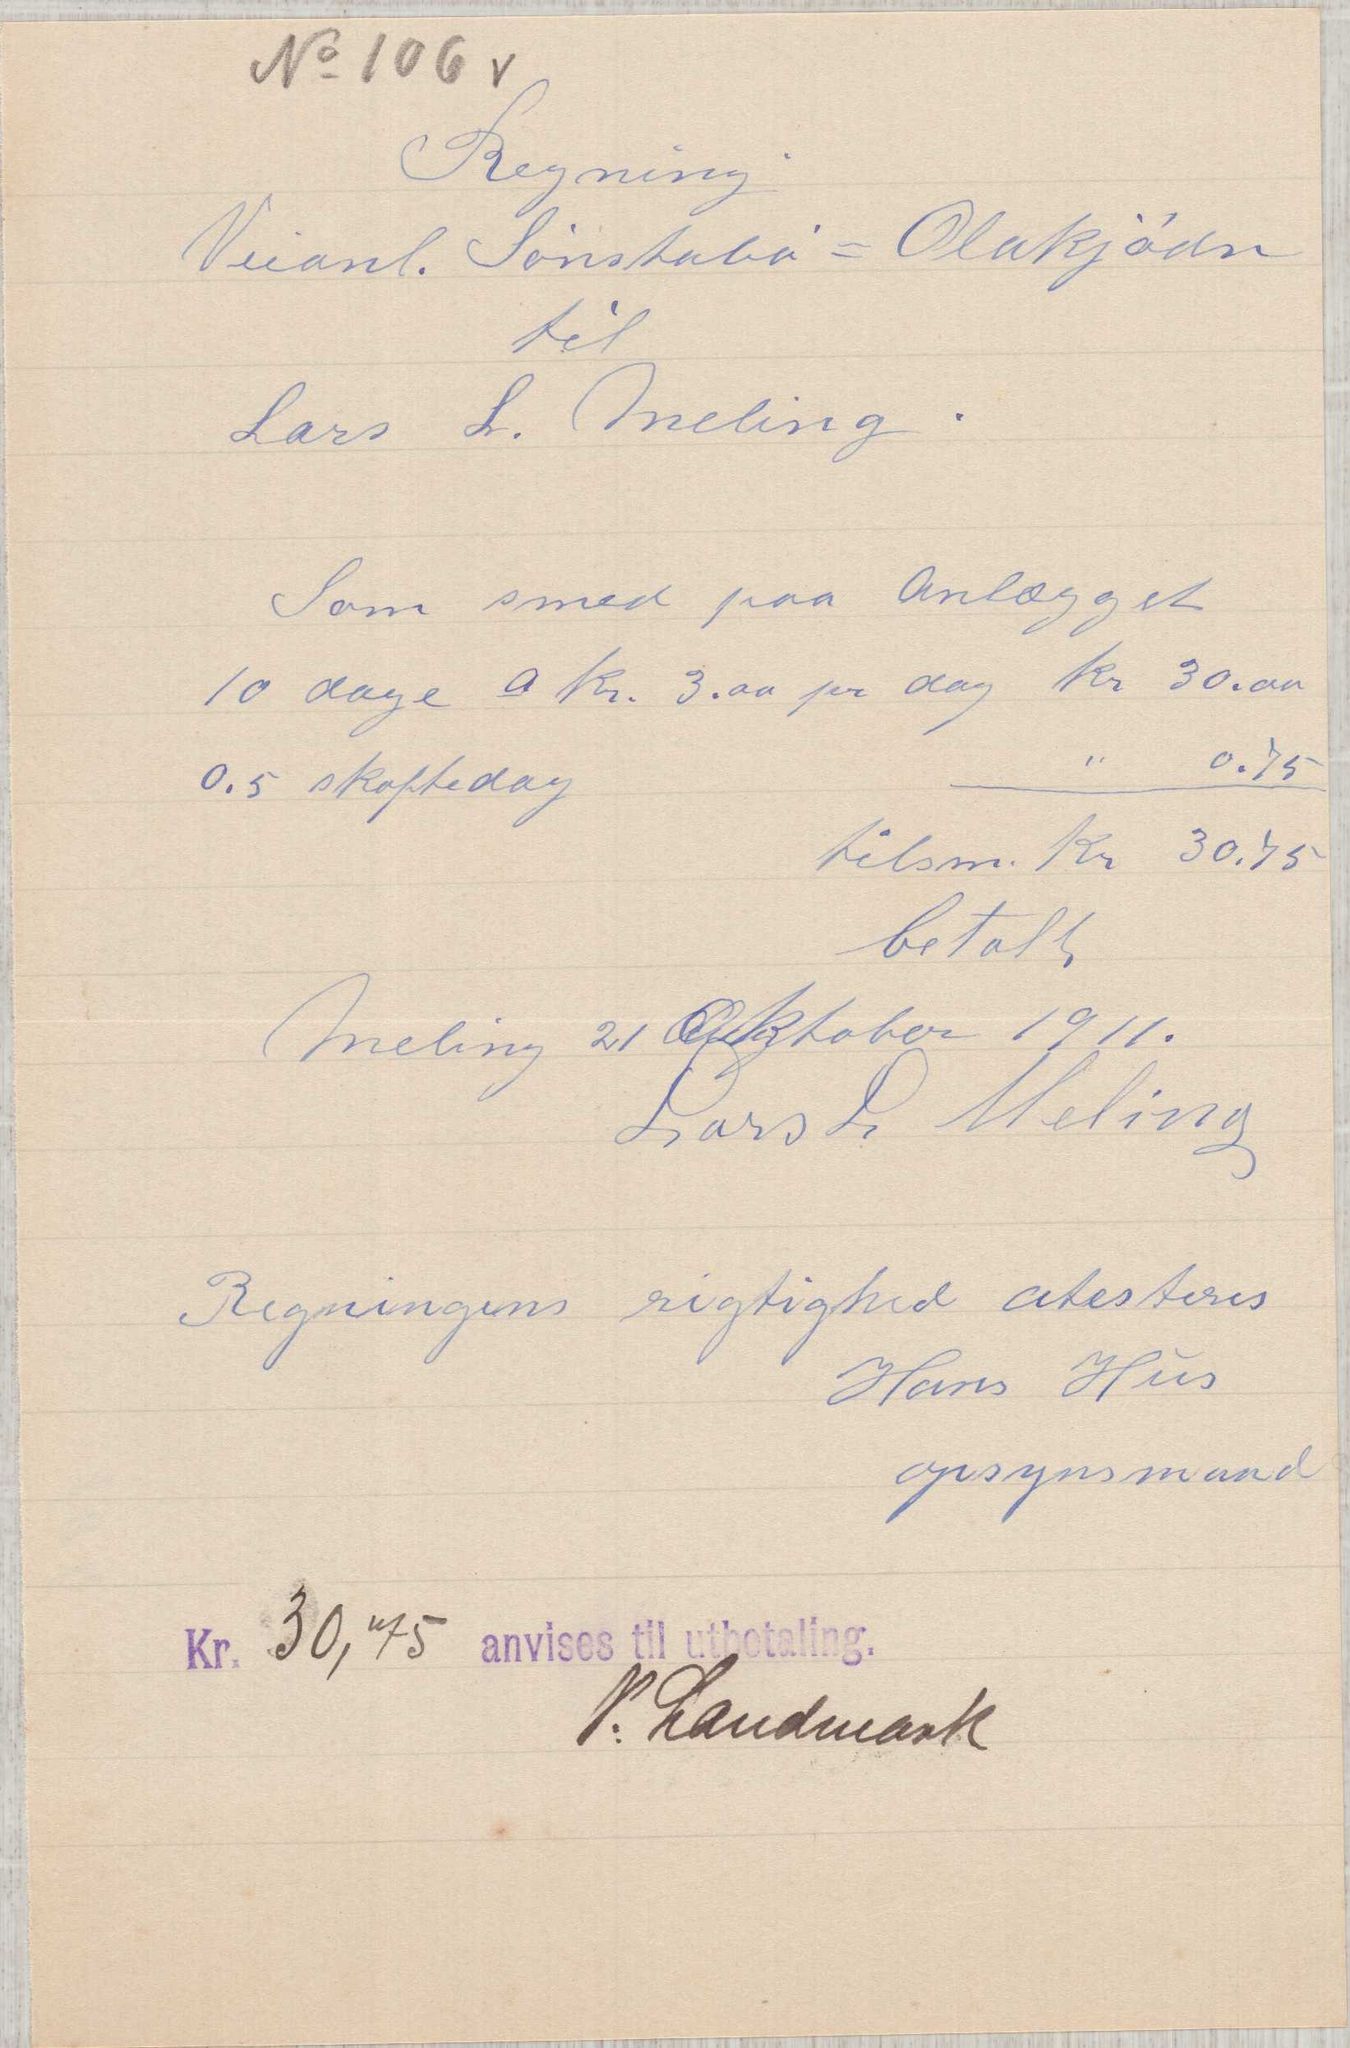 No 106 v
Regning
Veianl. Sönstabö = Olakjödn
til
Lars L. Meling.
Som smed paa Anlægget
10 dage a kr. 3.00 pr dag kr 30.00
0.5 skoftedag " 0.75
tilsm. Kr 30.75
betalt
Meling 21 Oktober 1911.
Lars L Meling
Regningens rigtighed atesteres
Hans Hus
opsynsmand
Kr. 30,75 anvises til utbetaling.
N. Landmark